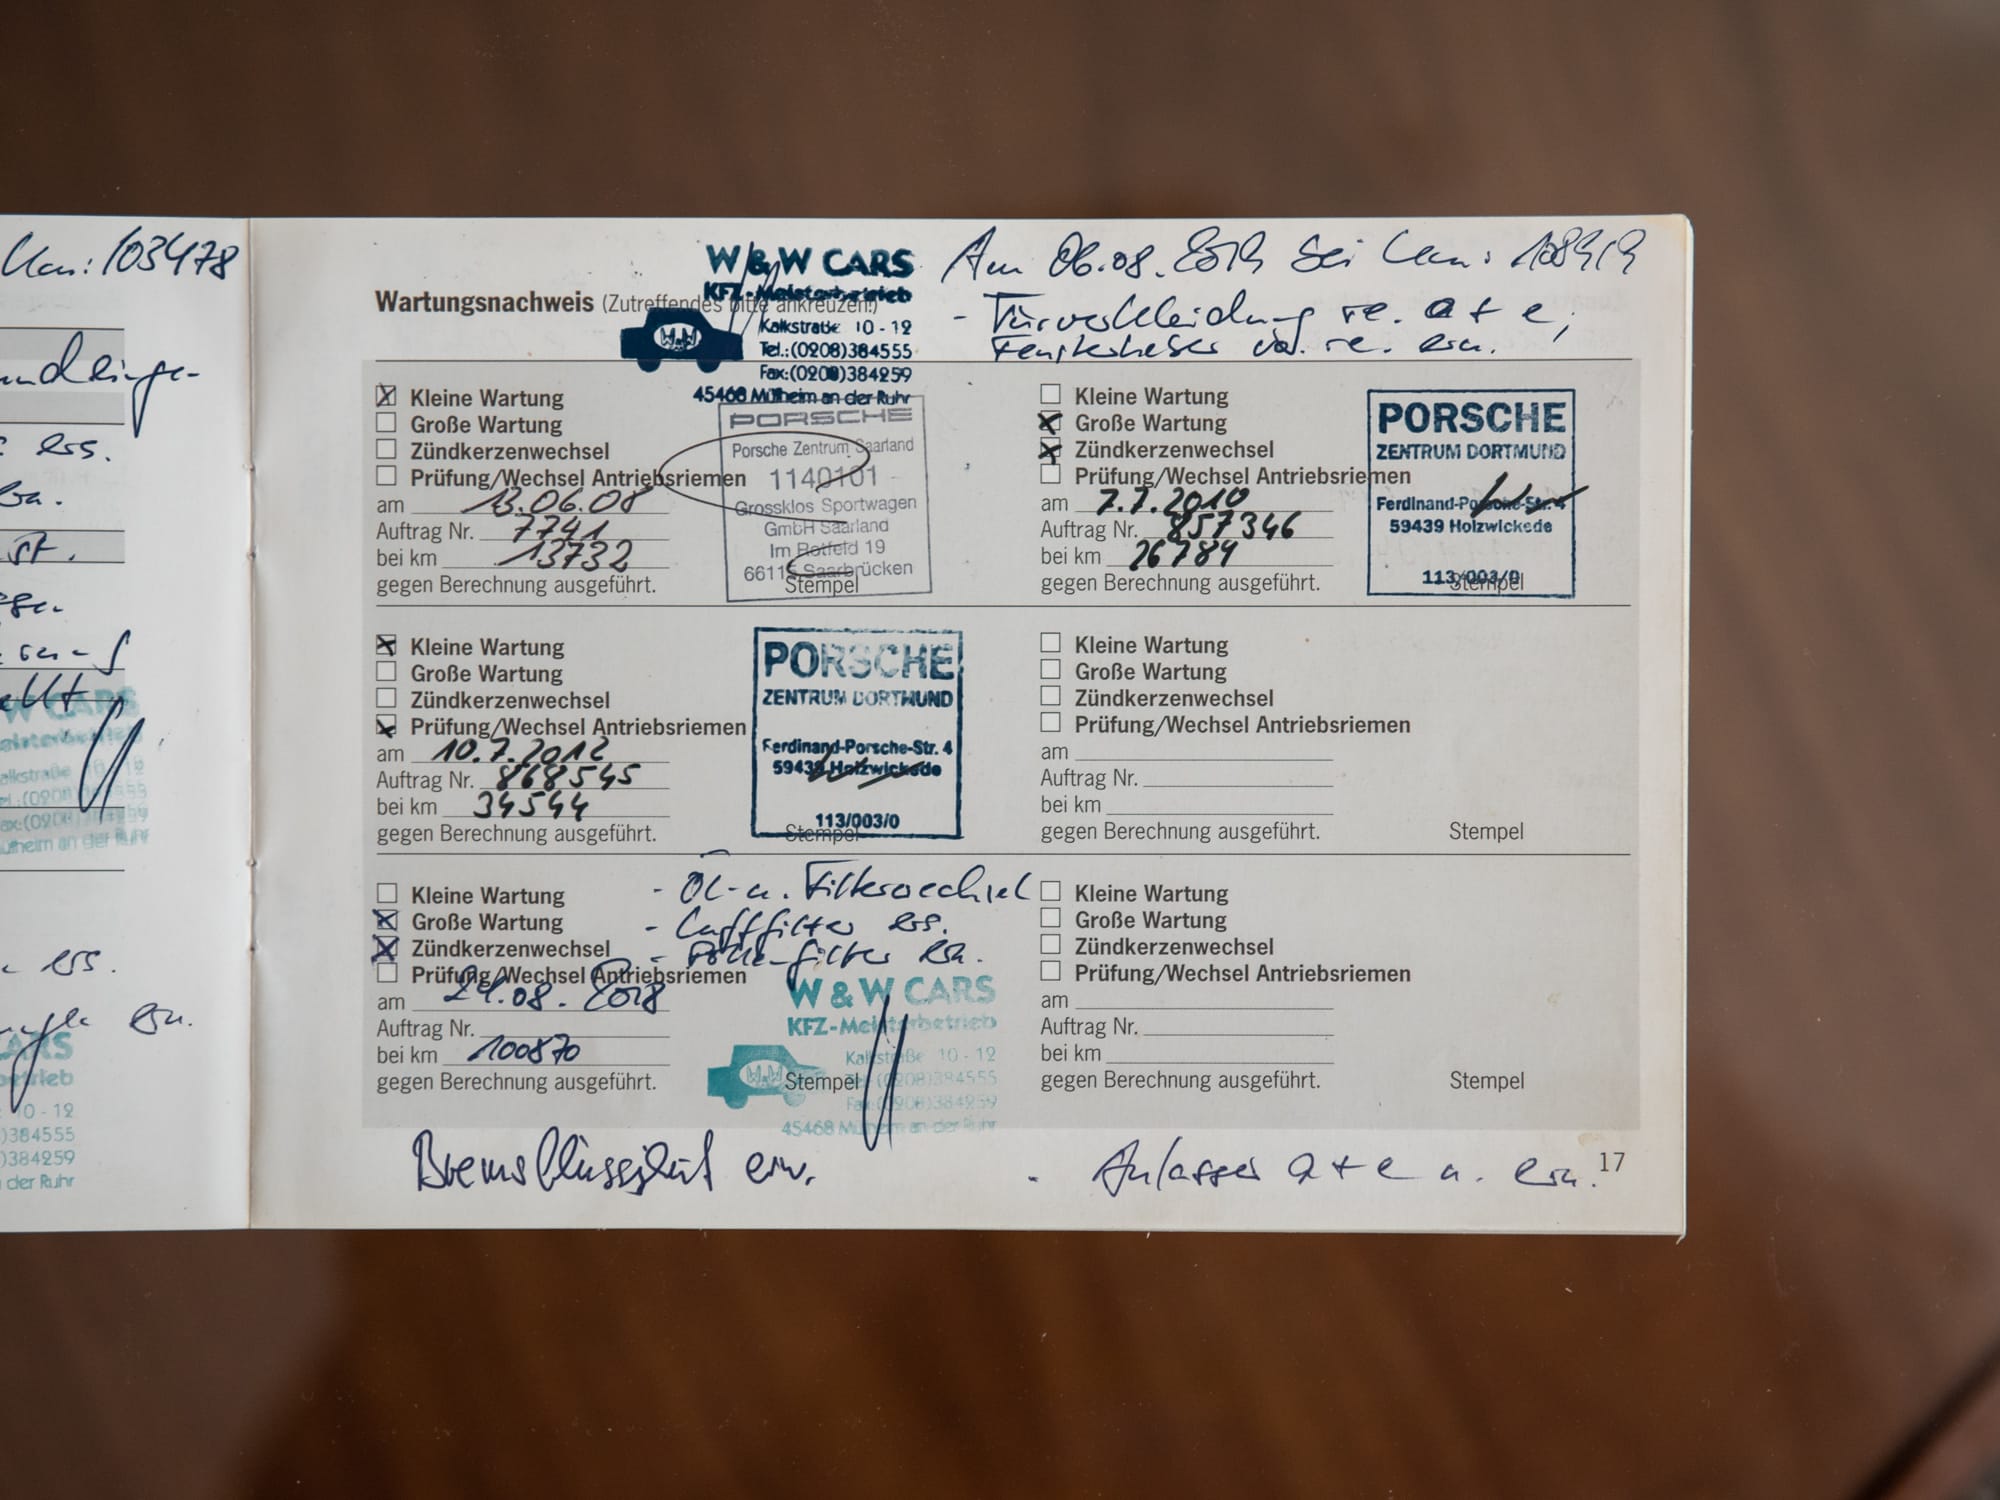 103478
ers.
st.
ers.
ern.
W & W CARS
10 - 12
)384555
)384259
der Ruhr
W & W CARS
KFZ-Meisterbetrieb
Kalkstraße 10 - 12
Tel.:(0208)384555
Fax:(0208)384259
45468 Mülheim an der Ruhr
Am 06.08.2019 bei km: 108919
- Türverkleidung re. a + e,
Fensterheber vo. re. ern.
Wartungsnachweis (Zutreffendes bitte ankreuzen!)
Kleine Wartung
Große Wartung
Zündkerzenwechsel
Prüfung/Wechsel Antriebsriemen
am 13.06.08
Auftrag Nr. 7741
bei km 13732
gegen Berechnung ausgeführt.
PORSCHE
Porsche Zentrum Saarland
1140101
Grossklos Sportwagen
GmbH Saarland
Im Rotfeld 19
66115 Saarbrücken
Stempel
Kleine Wartung
Große Wartung
Zündkerzenwechsel
Prüfung/Wechsel Antriebsriemen
am 7.7.2010
Auftrag Nr. 857346
bei km 26784
gegen Berechnung ausgeführt.
PORSCHE
ZENTRUM DORTMUND
Ferdinand-Porsche-Str. 4
59439 Holzwickede
113/003/0
Stempel
Kleine Wartung
Große Wartung
Zündkerzenwechsel
Prüfung/Wechsel Antriebsriemen
am 10.7.2012
Auftrag Nr. 868545
bei km 34544
gegen Berechnung ausgeführt.
PORSCHE
ZENTRUM DORTMUND
Ferdinand-Porsche-Str. 4
59439 Holzwickede
113/003/0
Stempel
Kleine Wartung
Große Wartung
Zündkerzenwechsel
Prüfung/Wechsel Antriebsriemen
am
Auftrag Nr.
bei km
gegen Berechnung ausgeführt.
Stempel
Kleine Wartung
Große Wartung
Zündkerzenwechsel
Prüfung/Wechsel Antriebsriemen
am 24.08.2018
Auftrag Nr.
bei km 100870
gegen Berechnung ausgeführt.
- Öl- u. Filterwechsel
- Luftfilter ers.
- Pollenfilter ern.
W & W CARS
KFZ-Meisterbetrieb
Kalkstraße 10 - 12
Tel.:(0208)384555
Fax:(0208)384259
45468 Mülheim an der Ruhr
Stempel
Kleine Wartung
Große Wartung
Zündkerzenwechsel
Prüfung/Wechsel Antriebsriemen
am
Auftrag Nr.
bei km
gegen Berechnung ausgeführt.
Stempel
Bremsflüssigkeit ern.
- Anlasser a + e u. ern.
17